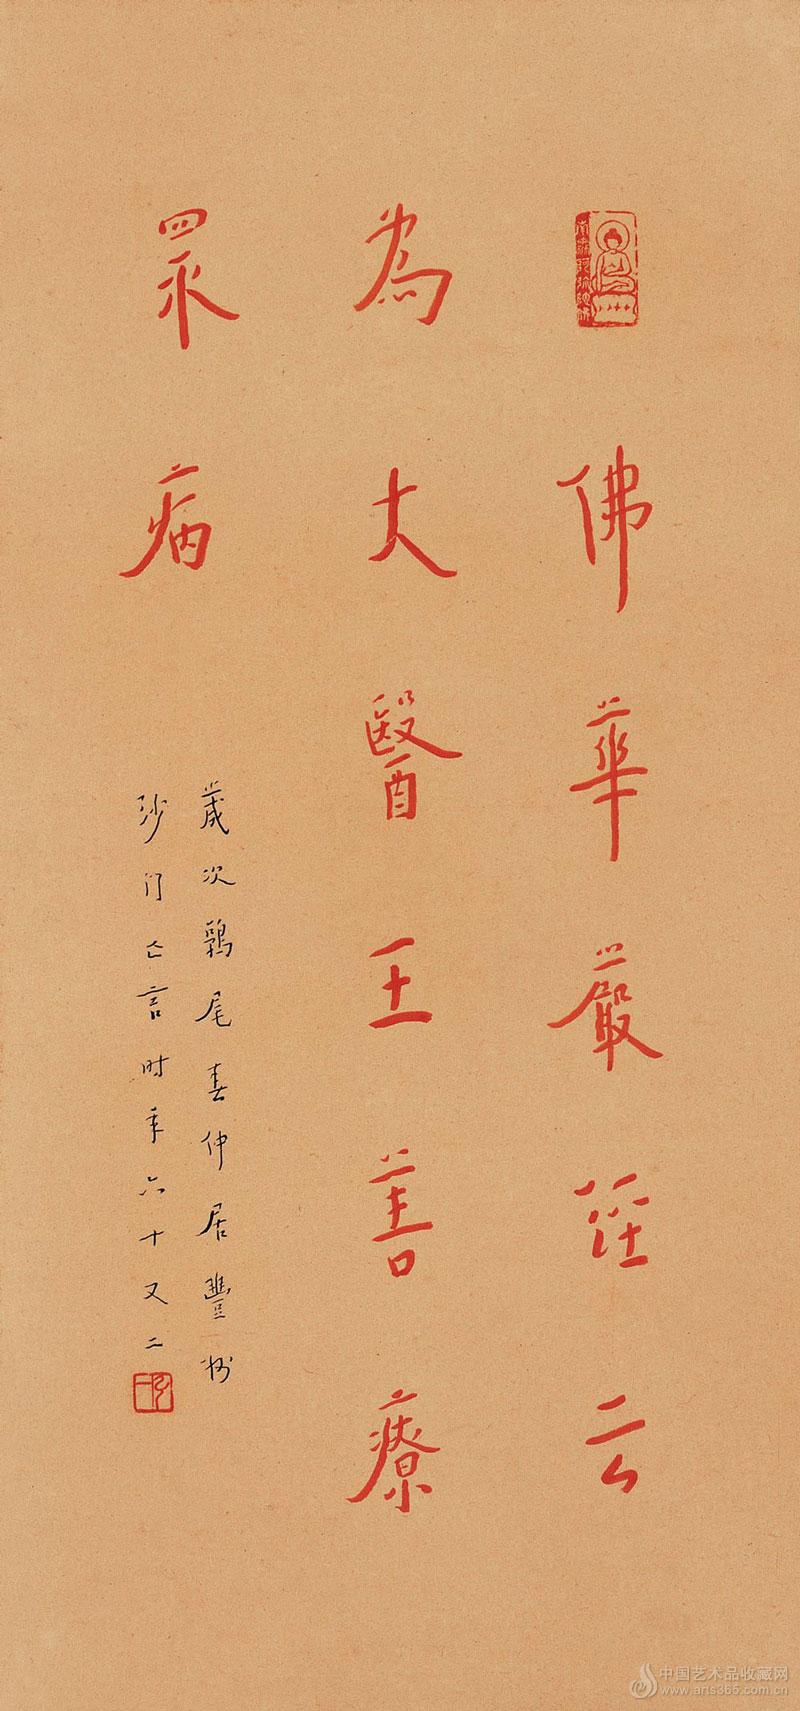 佛華嚴經云
為大醫王善療
眾病
歲次鶉尾春仲居豐州
沙门亡言时年六十又二
南無阿彌陀佛
中国艺术品收藏网
www.arts365.com.cn